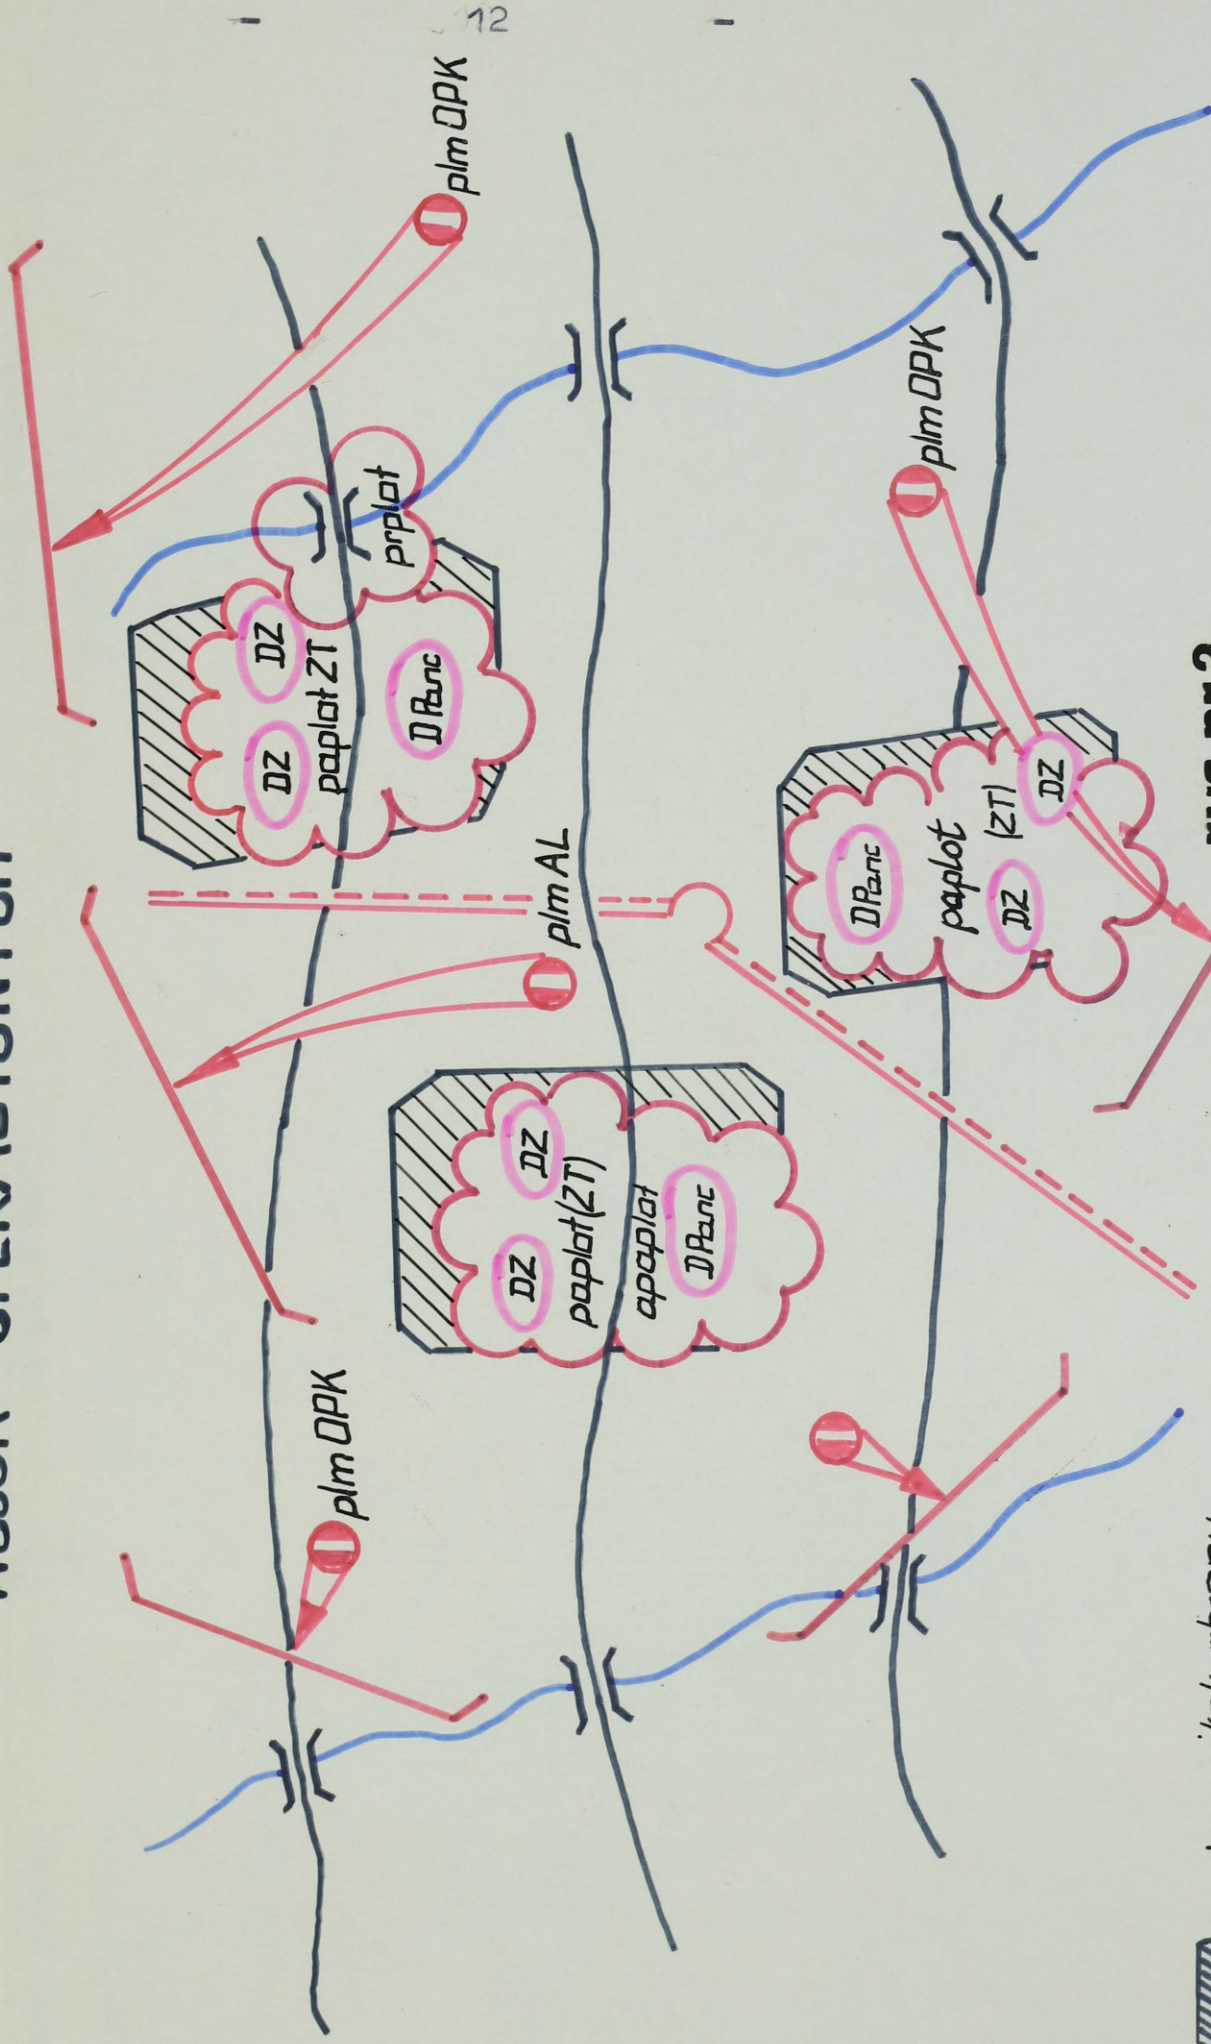 12
plm OPK
plm OPK
prplot
DZ
DZ
paplot ZT
DPanc
plm AL
DPanc
paplot
(ZT)
DZ
DZ
DZ
DZ
paplot(ZT)
apaplot
DPanc
plm OPK